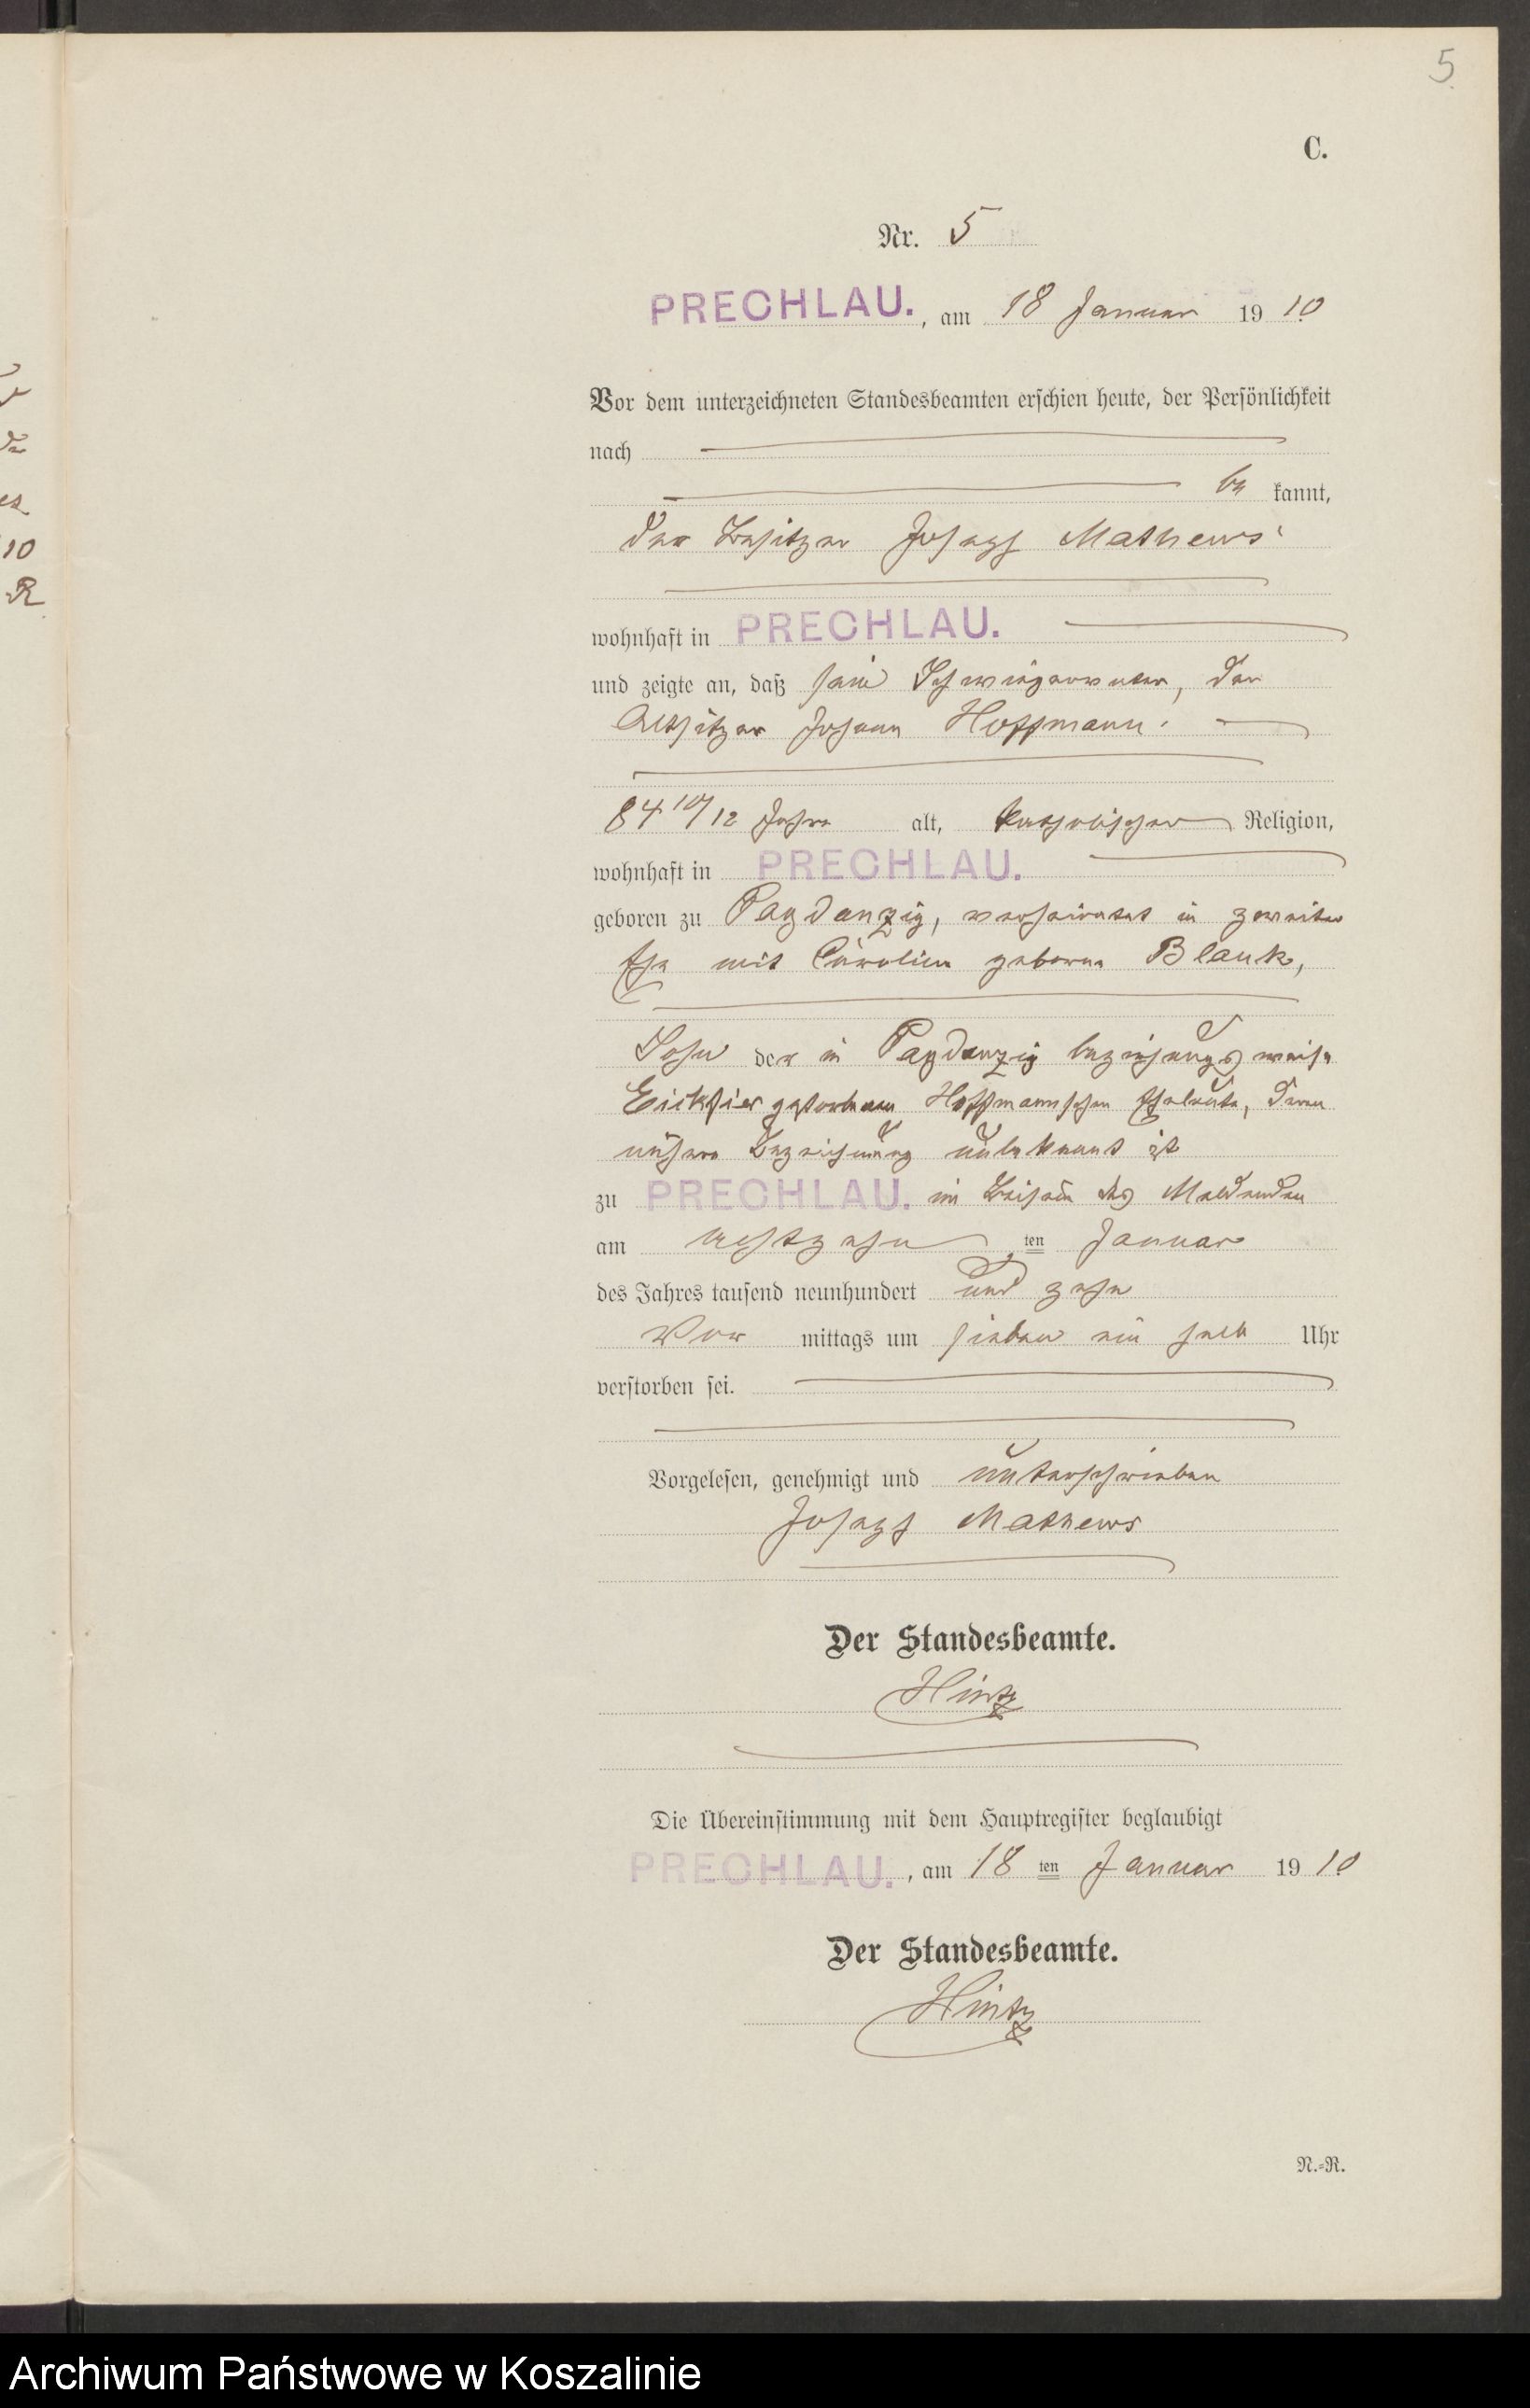 5
C.
Nr. 5
PRECHLAU., am 18 Januar 1910
Vor dem unterzeichneten Standesbeamten erschien heute, der Persönlichkeit
nach
be kannt,
der Besitzer Joseph Mathews
wohnhaft in PRECHLAU.
und zeigte an, daß sein Schwiegervater, der
Altsitzer Johann Hoffmann.
84 10/12 Jahre alt, katholischer Religion,
wohnhaft in PRECHLAU.
geboren zu Pagdanzig, verheiratet in zweiter
Ehe mit Carolina geborne Blank,
Sohn der in Pagdanzig beziehungsweise
Eickfier gestorbenen Hoffmannschen Eheleute, deren
nähere Bezeichnung unbekannt ist
zu PRECHLAU. im Beisein des Meldenden
am achtzehn ten Januar
des Jahres tausend neunhundert und zehn
Vor mittags um sieben ein halb Uhr
verstorben sei.
Vorgelesen, genehmigt und unterschrieben
Joseph Mathews
Der Standesbeamte.
Hintz
Die Übereinstimmung mit dem Hauptregister beglaubigt
PRECHLAU., am 18 ten Januar 1910
Der Standesbeamte.
Hintz
N.-R.
10
R
Archiwum Państwowe w Koszalinie